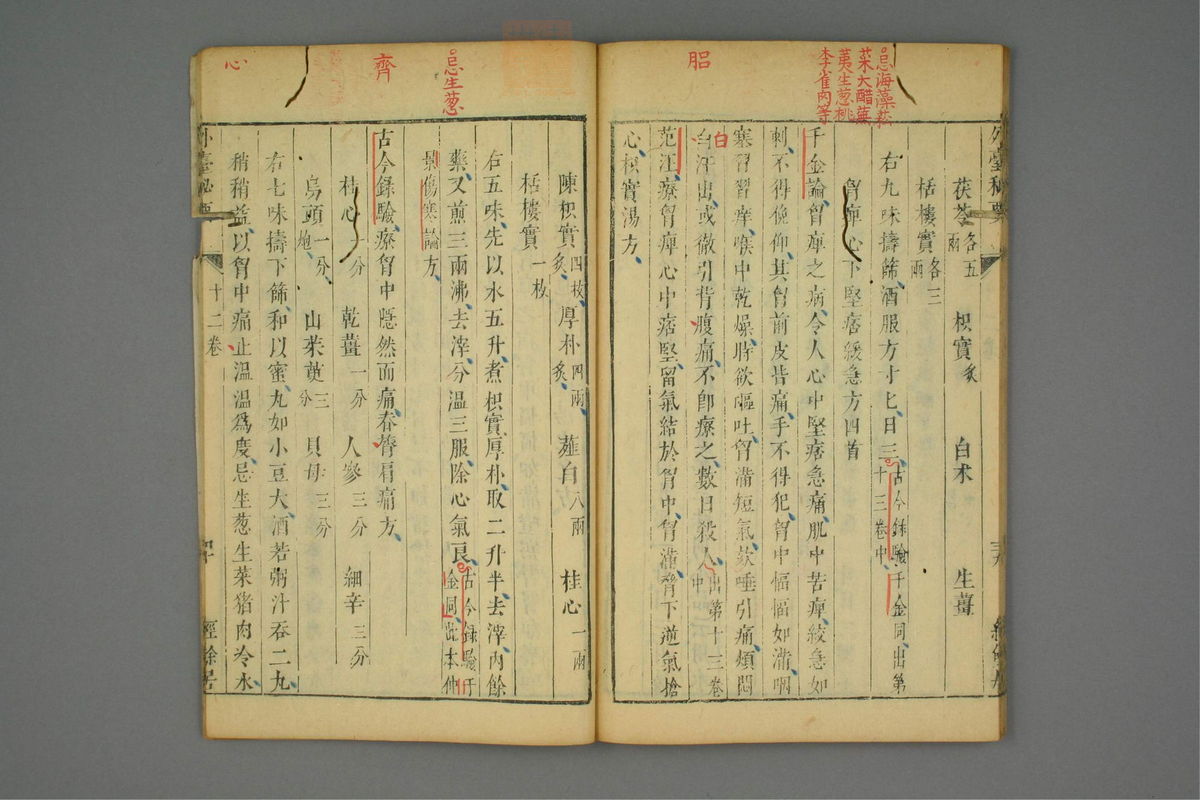 忌海藻菘
菜大醋蕪
荑生葱桃
李雀肉等
䏰
茯苓各五兩 枳實炙 白术 生薑
栝樓實各三兩
右九味擣篩酒服方寸匕日三古今錄驗千金同出第十三卷中
胷痺心下堅痞緩急方四首
千金論胷痺之病令人心中堅痞急痛肌中苦痺絞急如
刺不得俛仰其胷前皮皆痛手不得犯胷中愊愊如滿咽
塞習習痒喉中乾燥時欲嘔吐胷滿短氣欬唾引痛煩悶
白汗出或徹引背腹痛不卽療之數日殺人出第十三卷中
白
范汪療胷痺心中痞堅留氣結於胷中胷滿脅下逆氣搶
心枳實湯方
陳枳實四枚炙 厚朴四兩炙 薤白八兩 桂心一兩
栝樓實一枚
右五味先以水五升煮枳實厚朴取二升半去滓內餘
藥又煎三兩沸去滓分溫三服除心氣良古今錄驗千金同此本仲
景傷寒論方
忌生葱
齊
古今錄驗療胷中隱然而痛脊膂肩痛方
桂心一分 乾薑一分 人參三分 細辛三分
烏頭一分炮 山茱萸三分 貝母三分
右七味擣下篩和以蜜丸如小豆大酒若粥汁吞二丸
稍稍益以胷中痛止溫溫爲度忌生葱生菜猪肉冷水
心
外臺秘要 十二卷 經餘居